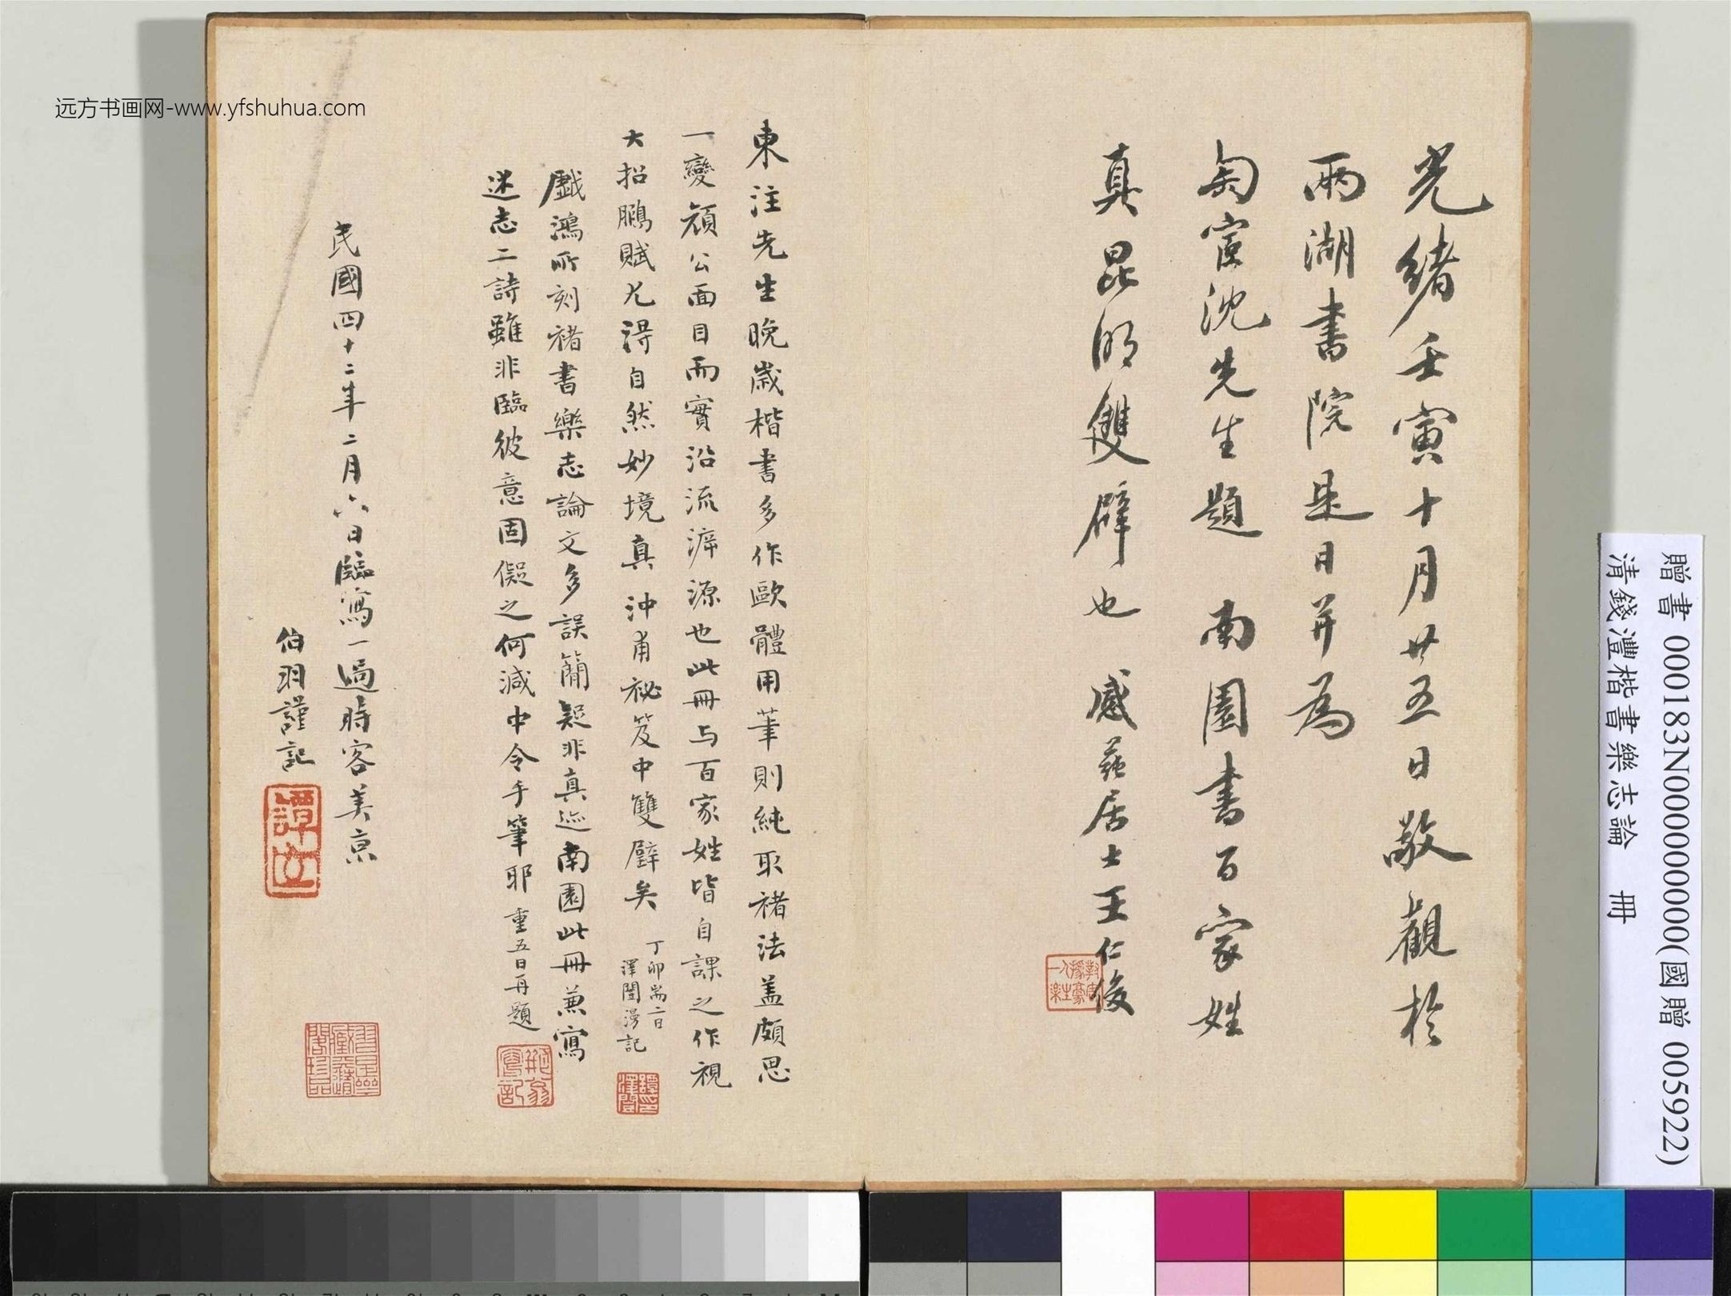 远方书画网-www.yfshuhua.com
光緒壬寅十月廿五日敬觀於
兩湖書院是日并為
匋宦沈先生題 南園書百家姓
真昆明雙璧也 感蒓居士王仁俊
東注先生晚歲楷書多作歐體用筆則純取褚法盖頗思
一變顏公面目而實沿流溯源也此冊与百家姓皆自課之作視
大招鵩賦尤得自然妙境真沖甫祕笈中雙璧矣
丁卯耑二日
澤闓漫記
戲鴻所刻褚書樂志論文多誤簡疑非真迹南園此冊兼寫
述志二詩雖非臨彼意固儗之何減中令手筆耶 重五日再題
民國四十二年二月六日臨寫一過時客美京
伯羽謹記
贈書 000183N000000000(國贈 005922)
清錢灃楷書樂志論 冊